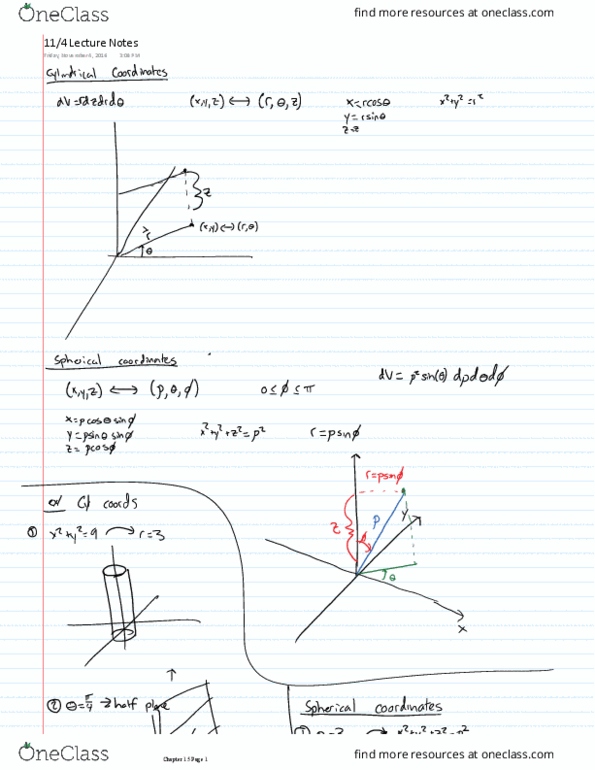 OneClass
find more resources at oneclass.com
11/4 Lecture Notes
Friday, November 4, 2016 3:08 PM
Cylindrical Coordinates
dV=rdzdrdθ (x,y,z) ⟷ (r, θ, z) x=rcosθ x²+y²=r²
y=rsinθ
z=z
z
r
(x,y)⟷(r,θ)
θ
Spherical coordinates
(x,y,z) ⟷ (ρ, θ, ϕ) 0≤ϕ≤π dV= ρ²sin(θ) dρdθdϕ
x=ρcosθ sinϕ
y=ρsinθ sinϕ x²+y²+z²=ρ² r=ρsinϕ
z=ρcosϕ
r=ρsinϕ
z
ρ
y
ϕ
θ
x
Cyl coords
① x²+y²=9 → r=3
② θ=π/4 → half plane
Spherical coordinates
OneClass
Chapter 15 Page 1
find more resources at oneclass.com